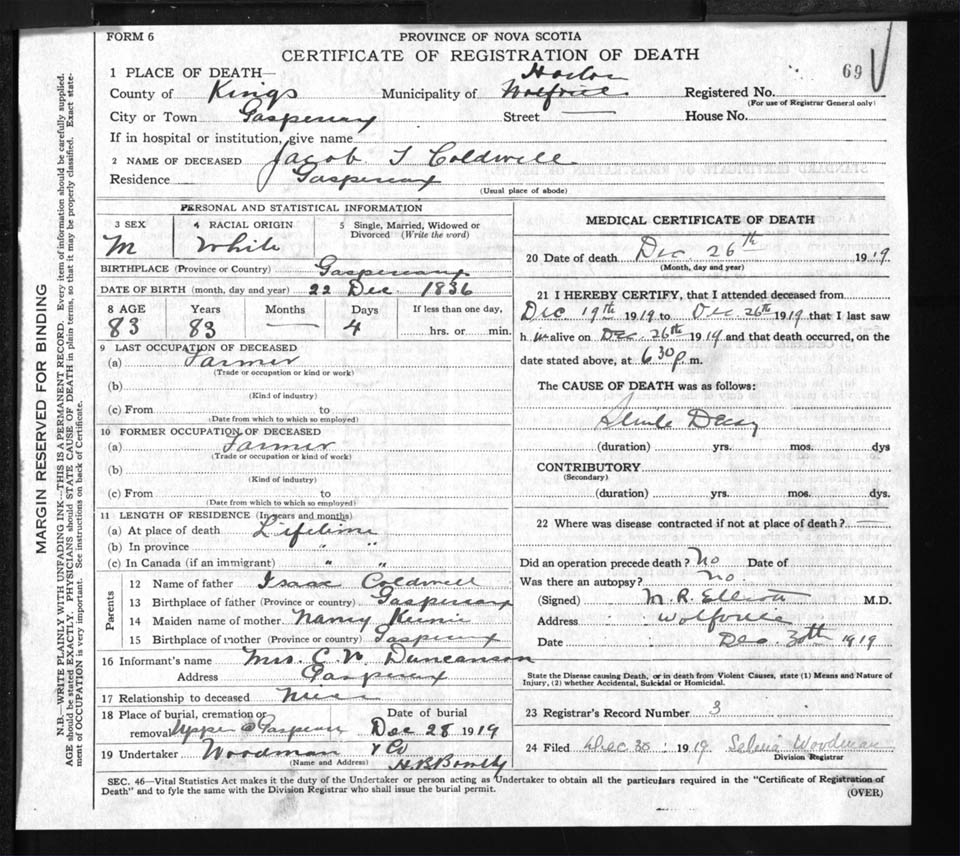 FORM 6
PROVINCE OF NOVA SCOTIA
CERTIFICATE OF REGISTRATION OF DEATH
69
1 PLACE OF DEATH— Horton
County of Kings Municipality of Wolfville Registered No.
(For use of Registrar General only)
City or Town Gaspereau Street — House No.
If in hospital or institution, give name
2 NAME OF DECEASED Jacob I Coldwell
Residence Gaspereau
(Usual place of abode)
PERSONAL AND STATISTICAL INFORMATION
3 SEX M
4 RACIAL ORIGIN White
5 Single, Married, Widowed or Divorced (Write the word)
BIRTHPLACE (Province or Country) Gaspereau
DATE OF BIRTH (month, day and year) 22 Dec. 1836
8 AGE Years Months Days If less than one day,
83 83 — 4 hrs. or min.
9 LAST OCCUPATION OF DECEASED
(a) Farmer
(Trade or occupation or kind or work)
(b)
(Kind of industry)
(c) From to
(Date from which to which so employed)
10 FORMER OCCUPATION OF DECEASED
(a) Farmer
(Trade or occupation or kind of work)
(b)
(Kind of industry)
(c) From to
(Date from which to which so employed)
11 LENGTH OF RESIDENCE (In years and months)
(a) At place of death Lifetime
(b) In province " "
(c) In Canada (if an immigrant) " "
Parents
12 Name of father Isaac Coldwell
13 Birthplace of father (Province or country) Gaspereau
14 Maiden name of mother Nancy
15 Birthplace of mother (Province or country) Gaspereau
16 Informant's name Mrs. C. W. Duncanson
Address Gaspereau
17 Relationship to deceased Niece
18 Place of burial, cremation or removal Upper Gaspereau
Date of burial Dec 28 1919
19 Undertaker Woodman & Co
(Name and Address)
MEDICAL CERTIFICATE OF DEATH
20 Date of death Dec. 26th 1919
(Month, day and year)
21 I HEREBY CERTIFY, that I attended deceased from
Dec. 19th 1919 to Dec 26th 1919 that I last saw
h im alive on Dec. 26th 1919 and that death occurred, on the
date stated above, at 6 30 p. m.
The CAUSE OF DEATH was as follows:
Senile Decay
(duration) yrs. mos. dys
CONTRIBUTORY
(Secondary)
(duration) yrs. mos. dys.
22 Where was disease contracted if not at place of death? —
Did an operation precede death? No Date of
Was there an autopsy? no
(Signed) M. R. Elliott M.D.
Address Wolfville
Date Dec. 30th 1919
State the Disease causing Death, or in death from Violent Causes, state (1) Means and Nature of
Injury, (2) whether Accidental, Suicidal or Homicidal.
23 Registrar's Record Number 3
24 Filed Dec 30 1919 Selena Woodman
Division Registrar
SEC. 46—Vital Statistics Act makes it the duty of the Undertaker or person acting as Undertaker to obtain all the particulars required in the "Certificate of Registration of
Death" and to fyle the same with the Division Registrar who shall issue the burial permit.
(OVER)
MARGIN RESERVED FOR BINDING
N.B.—WRITE PLAINLY WITH UNFADING INK—THIS IS A PERMANENT RECORD. Every item of information should be carefully supplied.
AGE should be stated EXACTLY. PHYSICIANS should STATE CAUSE OF DEATH in plain terms, so that it may be properly classified. Exact state-
ment of OCCUPATION is very important. See instructions on back of Certificate.